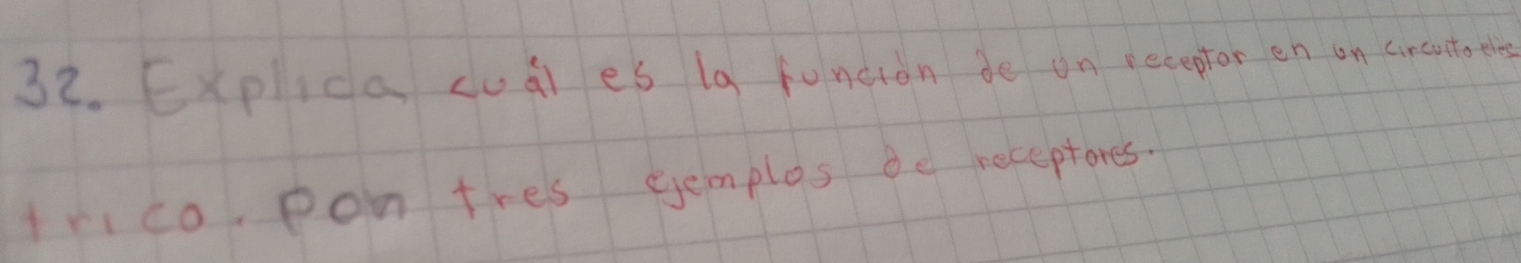 32. Explica cuál es la función de un receptor en un circuito eléc
trico. Pon tres ejemplos de receptores.